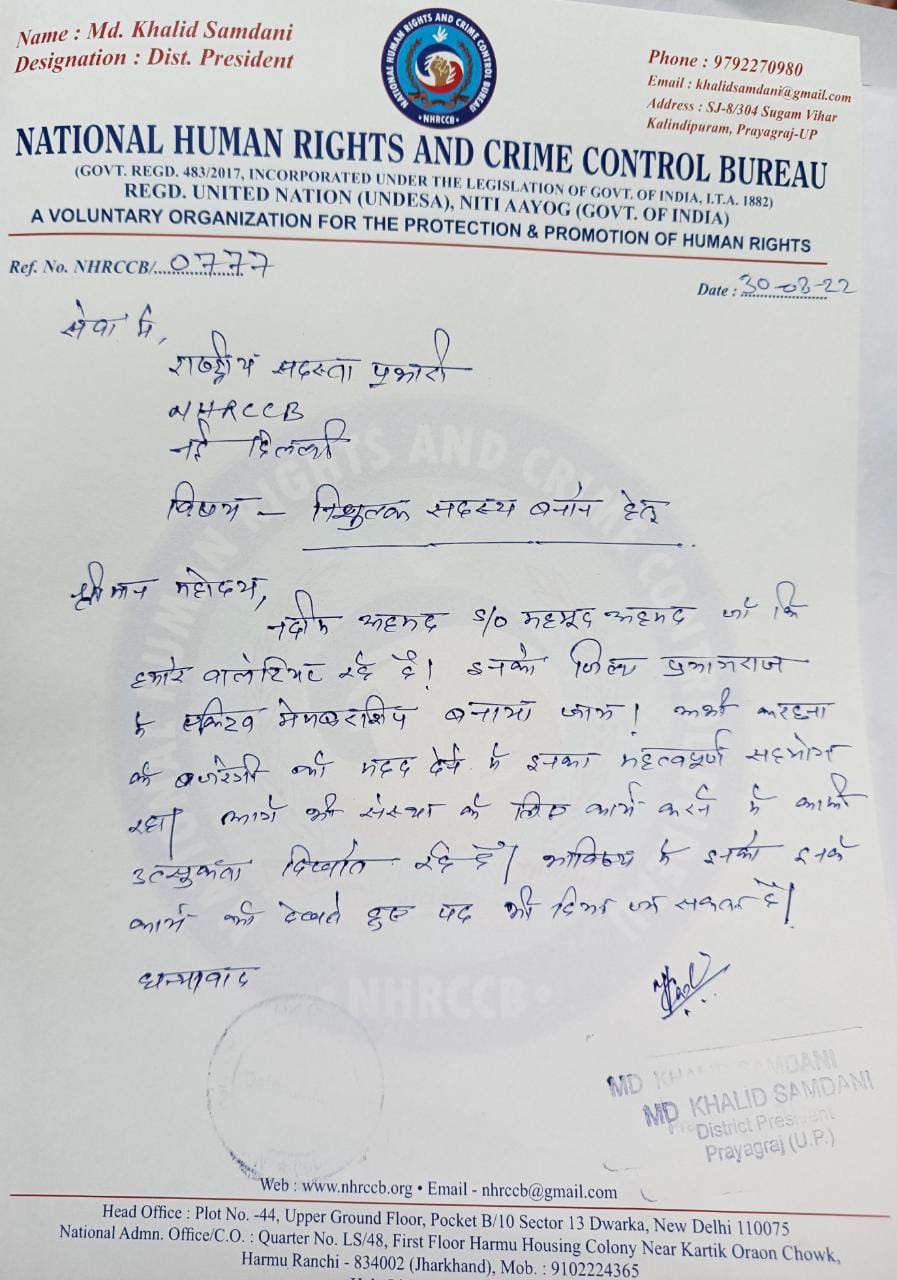 Name : Md. Khalid Samdani
Designation : Dist. President
NATIONAL HUMAN RIGHTS AND CRIME CONTROL BUREAU
NHRCCB
Phone : 9792270980
Email : khalidsamdani@gmail.com
Address : SJ-8/304 Sugam Vihar
Kalindipuram, Prayagraj-UP
NATIONAL HUMAN RIGHTS AND CRIME CONTROL BUREAU
(GOVT. REGD. 483/2017, INCORPORATED UNDER THE LEGISLATION OF GOVT. OF INDIA, I.T.A. 1882)
REGD. UNITED NATION (UNDESA), NITI AAYOG (GOVT. OF INDIA)
A VOLUNTARY ORGANIZATION FOR THE PROTECTION & PROMOTION OF HUMAN RIGHTS
Ref. No. NHRCCB/ 0777
Date : 30-08-22
सेवा में,
राष्ट्रीय सदस्ता प्रभारी
NHRCCB
नई दिल्ली
विषय - निशुल्क सदस्य बनाने हेतू
श्रीमान महोदय,
नदीम अहमद S/O महमूद अहमद जो कि
हमारे वालेंटियर रहे है। इनको जिला प्रयागराज
में एक्टिव मेम्बरशिप बनाया जाय। अभी
के को मदद देने में इनका महत्वपूर्ण सहयोग
रहा। आगे भी संस्था के लिए कार्य करने में काफी
उत्सुकता दिखाते रहे है। भविष्य में इनको इनके
कार्य को देखते हुए पद भी दिया जा सकता है।
धन्यवाद
MD KHALID SAMDANI
MD KHALID SAMDANI
District President
Prayagraj (U.P.)
Web : www.nhrccb.org • Email - nhrccb@gmail.com
Head Office : Plot No. -44, Upper Ground Floor, Pocket B/10 Sector 13 Dwarka, New Delhi 110075
National Admn. Office/C.O. : Quarter No. LS/48, First Floor Harmu Housing Colony Near Kartik Oraon Chowk,
Harmu Ranchi - 834002 (Jharkhand), Mob. : 9102224365